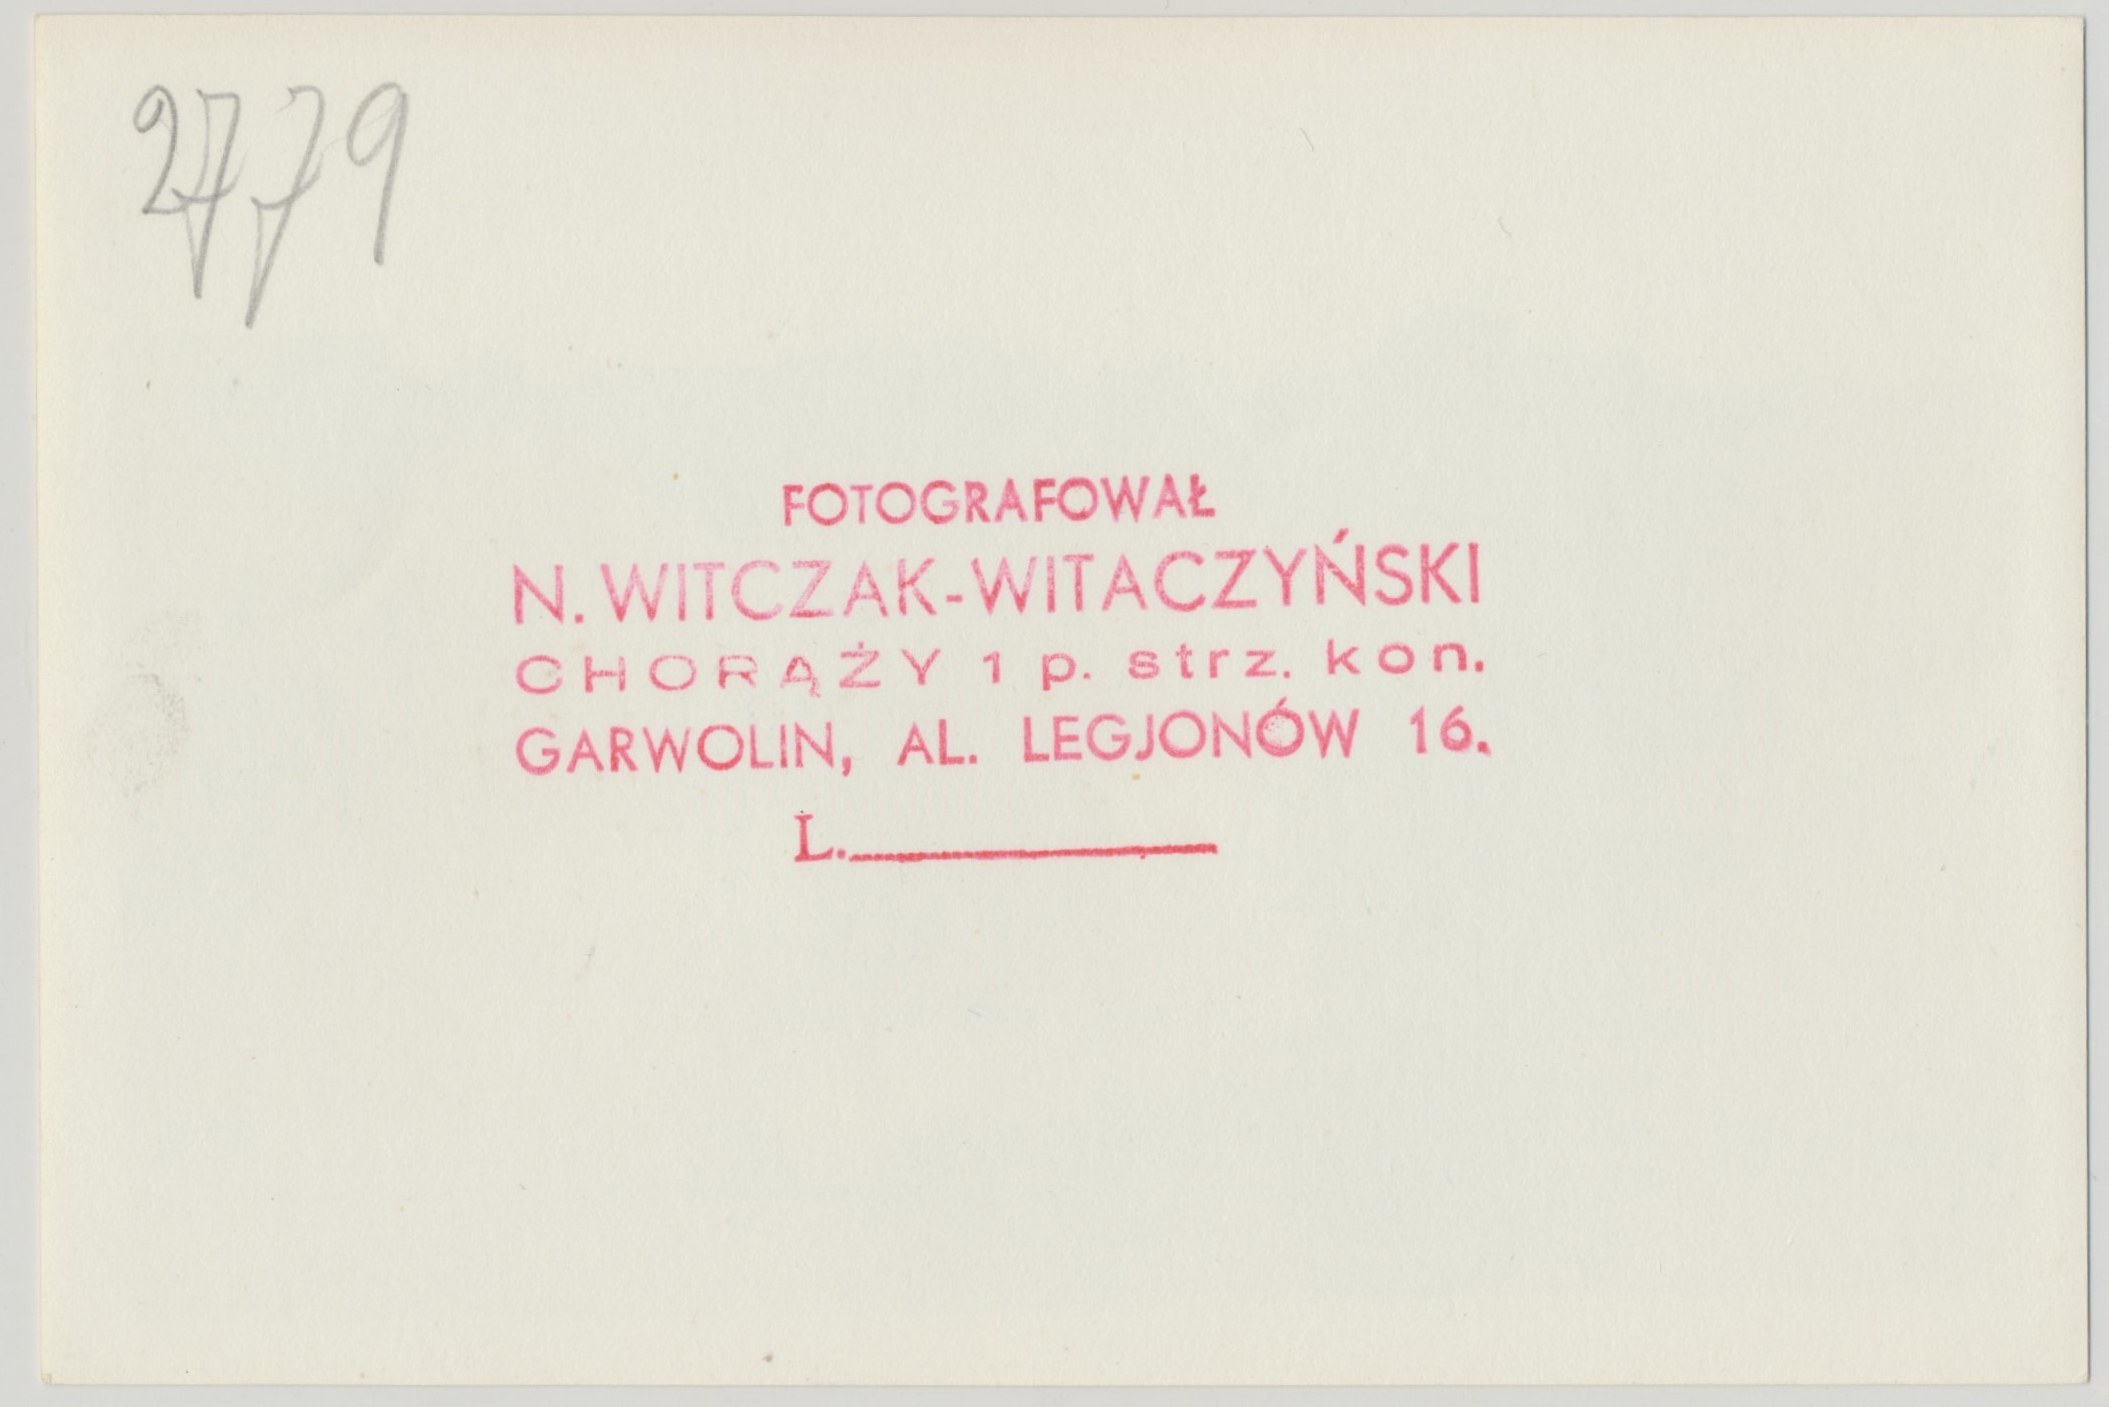 2779
FOTOGRAFOWAŁ
N. WITCZAK-WITACZYŃSKI
CHORĄŻY 1 p. strz. kon.
GARWOLIN, AL. LEGJONÓW 16.
L.